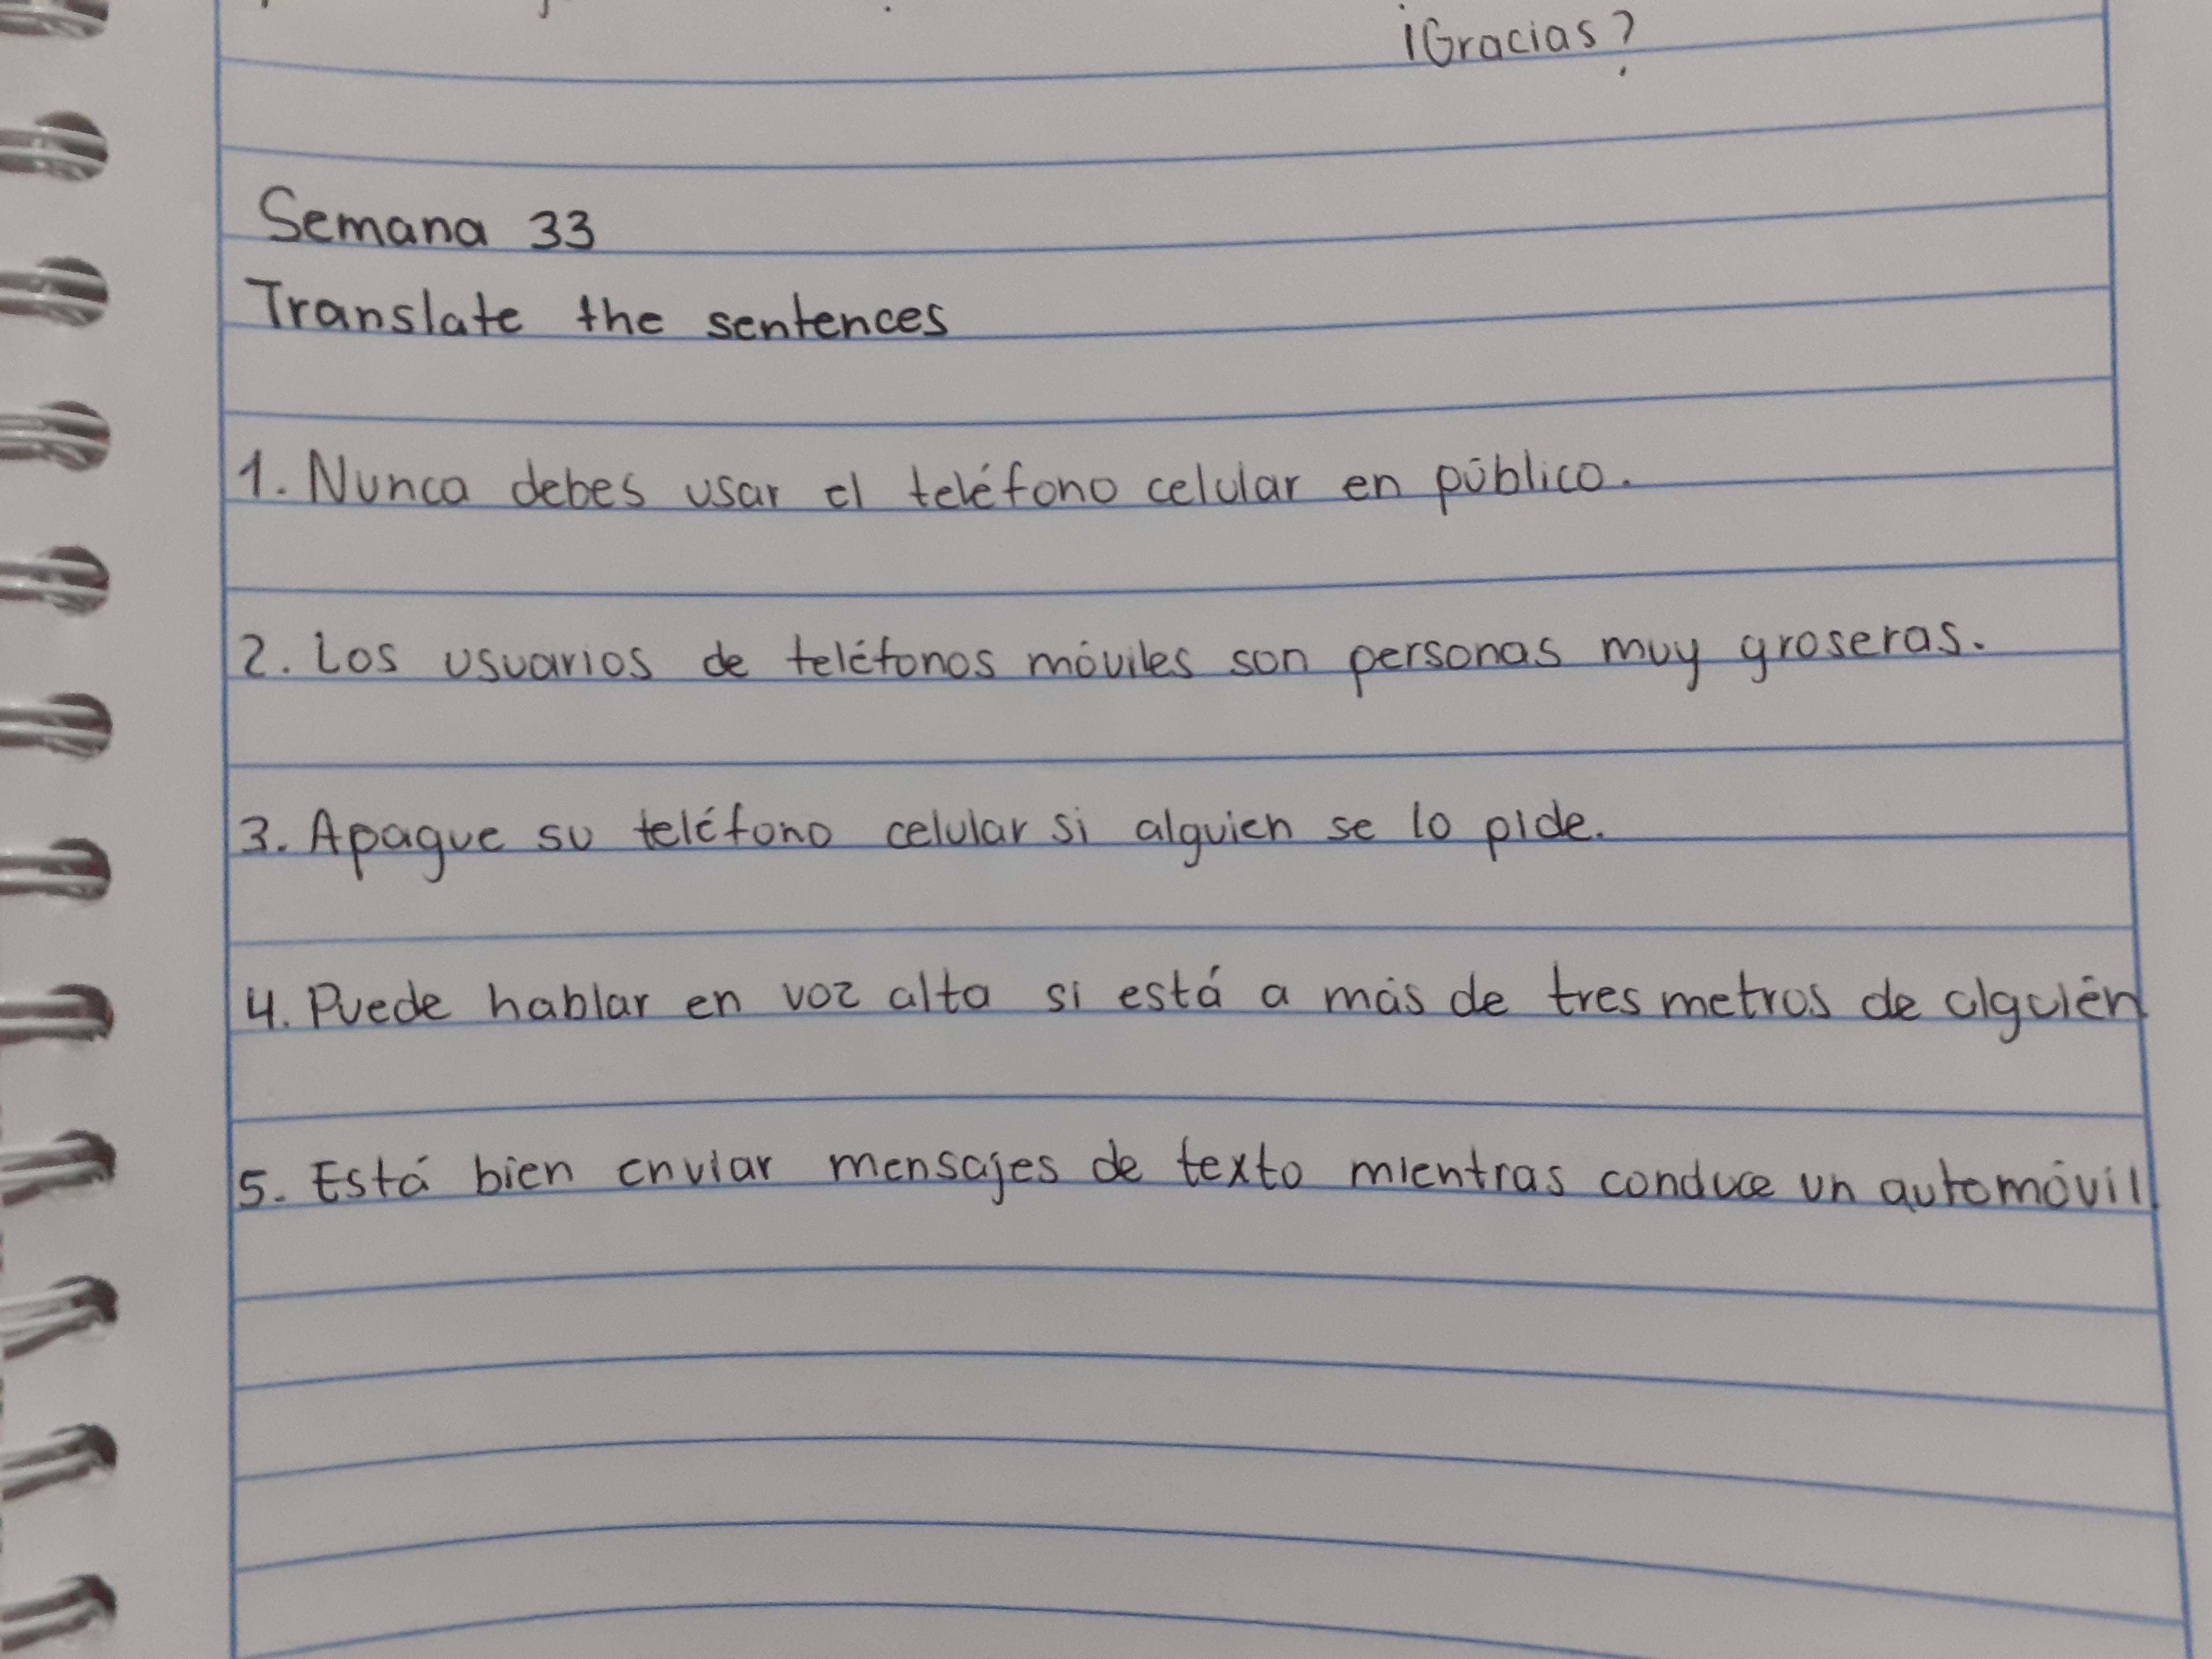 ¡Gracias?
Semana 33
Translate the sentences
1. Nunca debes usar el teléfono celular en público.
2. Los usuarios de teléfonos móviles son personas muy groseras.
3. Apague su teléfono celular si alguien se lo pide.
4. Puede hablar en voz alta si está a más de tres metros de alguién
5. Está bien enviar mensajes de texto mientras conduce un automóvil